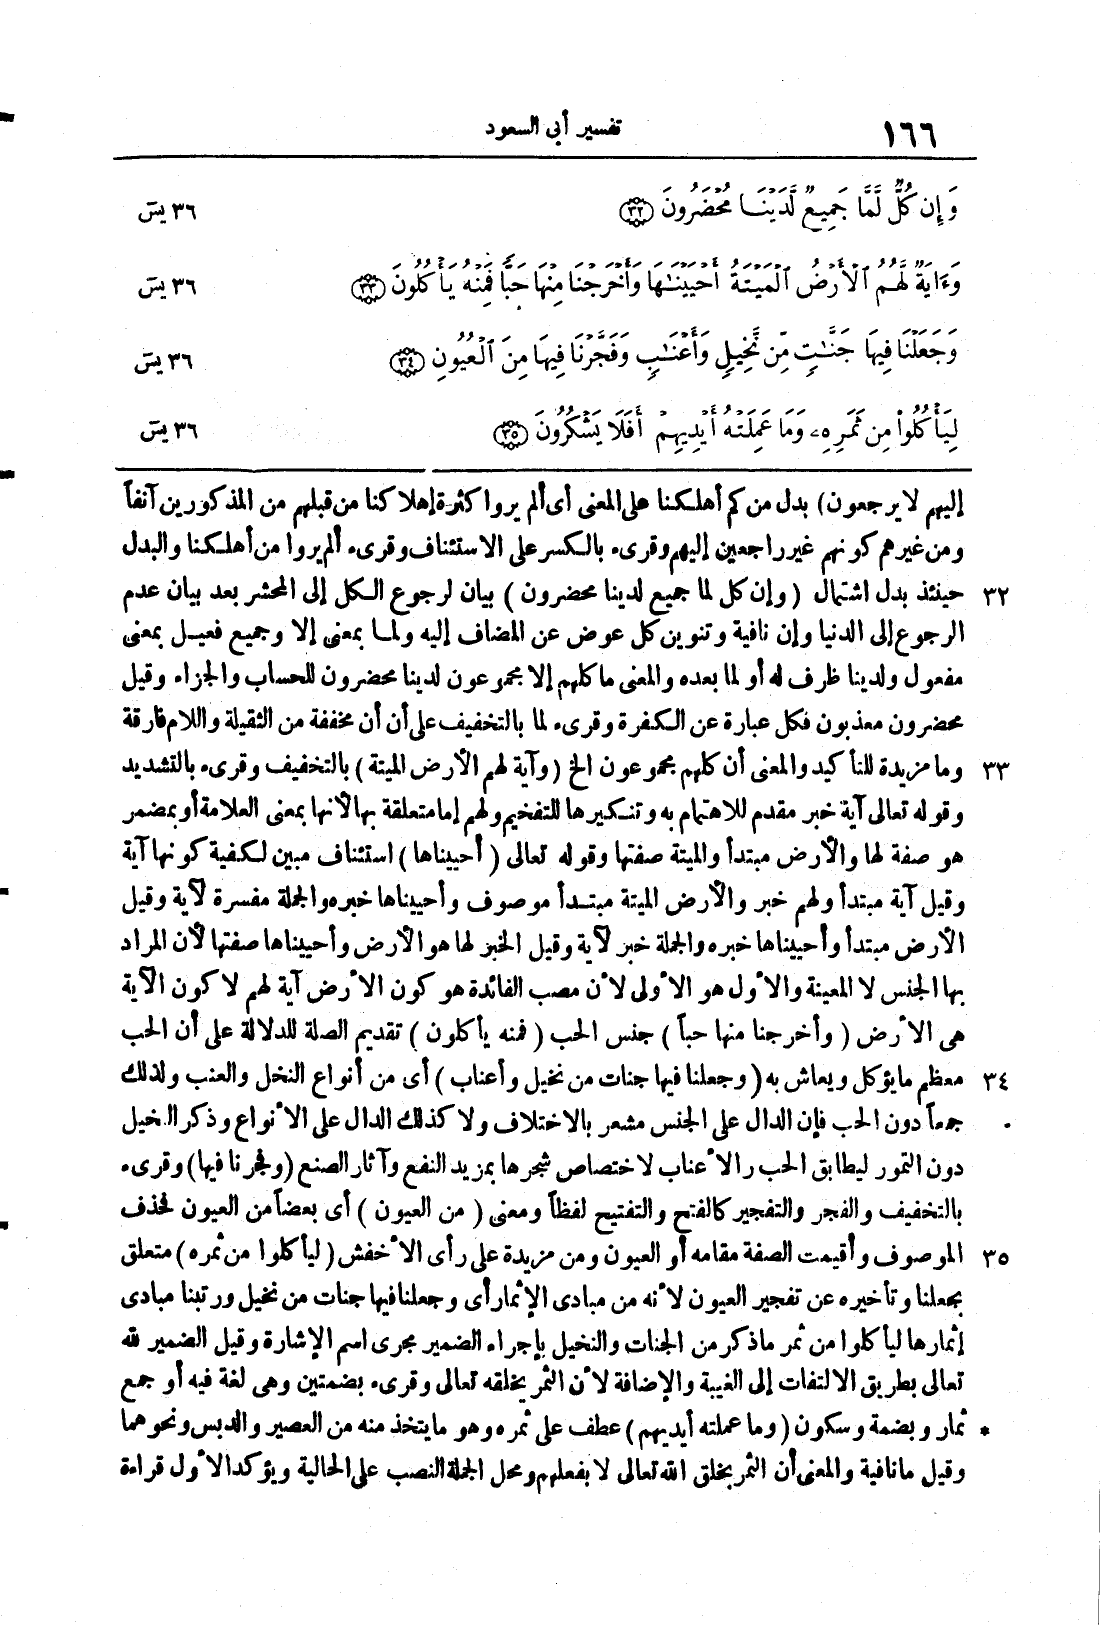 ١٦٦ تفسير أبى السعود
وَإِن كُلٌّ لَّمَّا جَمِيعٌ لَّدَيْنَا مُحْضَرُونَ ﴿٣٢﴾ ٣٦ يسٓ
وَءَايَةٌ لَّهُمُ ٱلْأَرْضُ ٱلْمَيْتَةُ أَحْيَيْنَـٰهَا وَأَخْرَجْنَا مِنْهَا حَبًّا فَمِنْهُ يَأْكُلُونَ ﴿٣٣﴾ ٣٦ يسٓ
وَجَعَلْنَا فِيهَا جَنَّـٰتٍ مِّن نَّخِيلٍ وَأَعْنَـٰبٍ وَفَجَّرْنَا فِيهَا مِنَ ٱلْعُيُونِ ﴿٣٤﴾ ٣٦ يسٓ
لِيَأْكُلُوا۟ مِن ثَمَرِهِۦ وَمَا عَمِلَتْهُ أَيْدِيهِمْ أَفَلَا يَشْكُرُونَ ﴿٣٥﴾ ٣٦ يسٓ
إليهم لا يرجعون) بدل من كم أهلكنا على المعنى أى ألم يروا كثرة إهلاكنا من قبلهم من المذكورين آنفاً
ومن غيرهم كونهم غير راجعين إليهم وقرىء بالكسر على الاستئناف وقرىء ألم يروا من أهلكنا والبدل
٣٢ حينئذ بدل اشتمال (وإن كل لما جميع لدينا محضرون) بيان لرجوع الكل إلى المحشر بعد بيان عدم
الرجوع إلى الدنيا وإن نافية وتنوين كل عوض عن المضاف إليه ولما بمعنى إلا وجميع فعيل بمعنى
مفعول ولدينا ظرف له أو لما بعده والمعنى ما كلهم إلا مجموعون لدينا محضرون للحساب والجزاء وقيل
محضرون معذبون فكل عبارة عن الكفرة وقرىء لما بالتخفيف على أن أن مخففة من الثقيلة واللام فارقة
٣٣ وما مزيدة للتأكيد والمعنى أن كلهم مجموعون الخ (وآية لهم الأرض الميتة) بالتخفيف وقرىء بالتشديد
وقوله تعالى آية خبر مقدم للاهتمام به وتنكيرها للتفخيم ولهم إما متعلقة بها لأنها بمعنى العلامة أو بمضمر
هو صفة لها والأرض مبتدأ والميتة صفتها وقوله تعالى (أحييناها) استئناف مبين لكيفية كونها آية
وقيل آية مبتدأ ولهم خبر والأرض الميتة مبتدأ موصوف وأحييناها خبره والجملة مفسرة لآية وقيل
الأرض مبتدأ وأحييناها خبره والجملة خبر لآية وقيل الخبر لها هو الأرض وأحييناها صفتها لأن المراد
بها الجنس لا المعينة والأول هو الأولى لأن مصب الفائدة هو كون الأرض آية لهم لا كون الآية
هى الأرض (وأخرجنا منها حباً) جنس الحب (فمنه يأكلون) تقديم الصلة للدلالة على أن الحب
٣٤ معظم ما يؤكل ويعاش به (وجعلنا فيها جنات من نخيل وأعناب) أى من أنواع النخل والعنب ولذلك
جمعاً دون الحب فإن الدال على الجنس مشعر بالاختلاف ولا كذلك الدال على الأنواع وذكر النخيل
دون التمور ليطابق الحب والأعناب لاختصاص شجرها بمزيد النفع وآثار الصنع (وفجرنا فيها) وقرىء
بالتخفيف والفجر والتفجير كالفتح والتفتيح لفظاً ومعنى (من العيون) أى بعضاً من العيون فحذف
٣٥ الموصوف وأقيمت الصفة مقامه أو العيون ومن مزيدة على رأى الأخفش (ليأكلوا من ثمره) متعلق
بجعلنا وتأخيره عن تفجير العيون لأنه من مبادى الإثمار أى وجعلنا فيها جنات من نخيل ورتبنا مبادى
إثمارها ليأكلوا من ثمر ما ذكر من الجنات والنخيل بإجراء الضمير مجرى اسم الإشارة وقيل الضمير لله
تعالى بطريق الالتفات إلى الغيبة والإضافة لأن الثمر يخلقه تعالى وقرىء بضمتين وهى لغة فيه أو جمع
* ثمار وبضمة وسكون (وما عملته أيديهم) عطف على ثمره وهو ما يتخذ منه من العصير والدبس ونحوهما
وقيل ما نافية والمعنى أن الثمر بخلق الله تعالى لا بفعلهم ومحل الجملة النصب على الحالية ويؤكد الأول قراءة